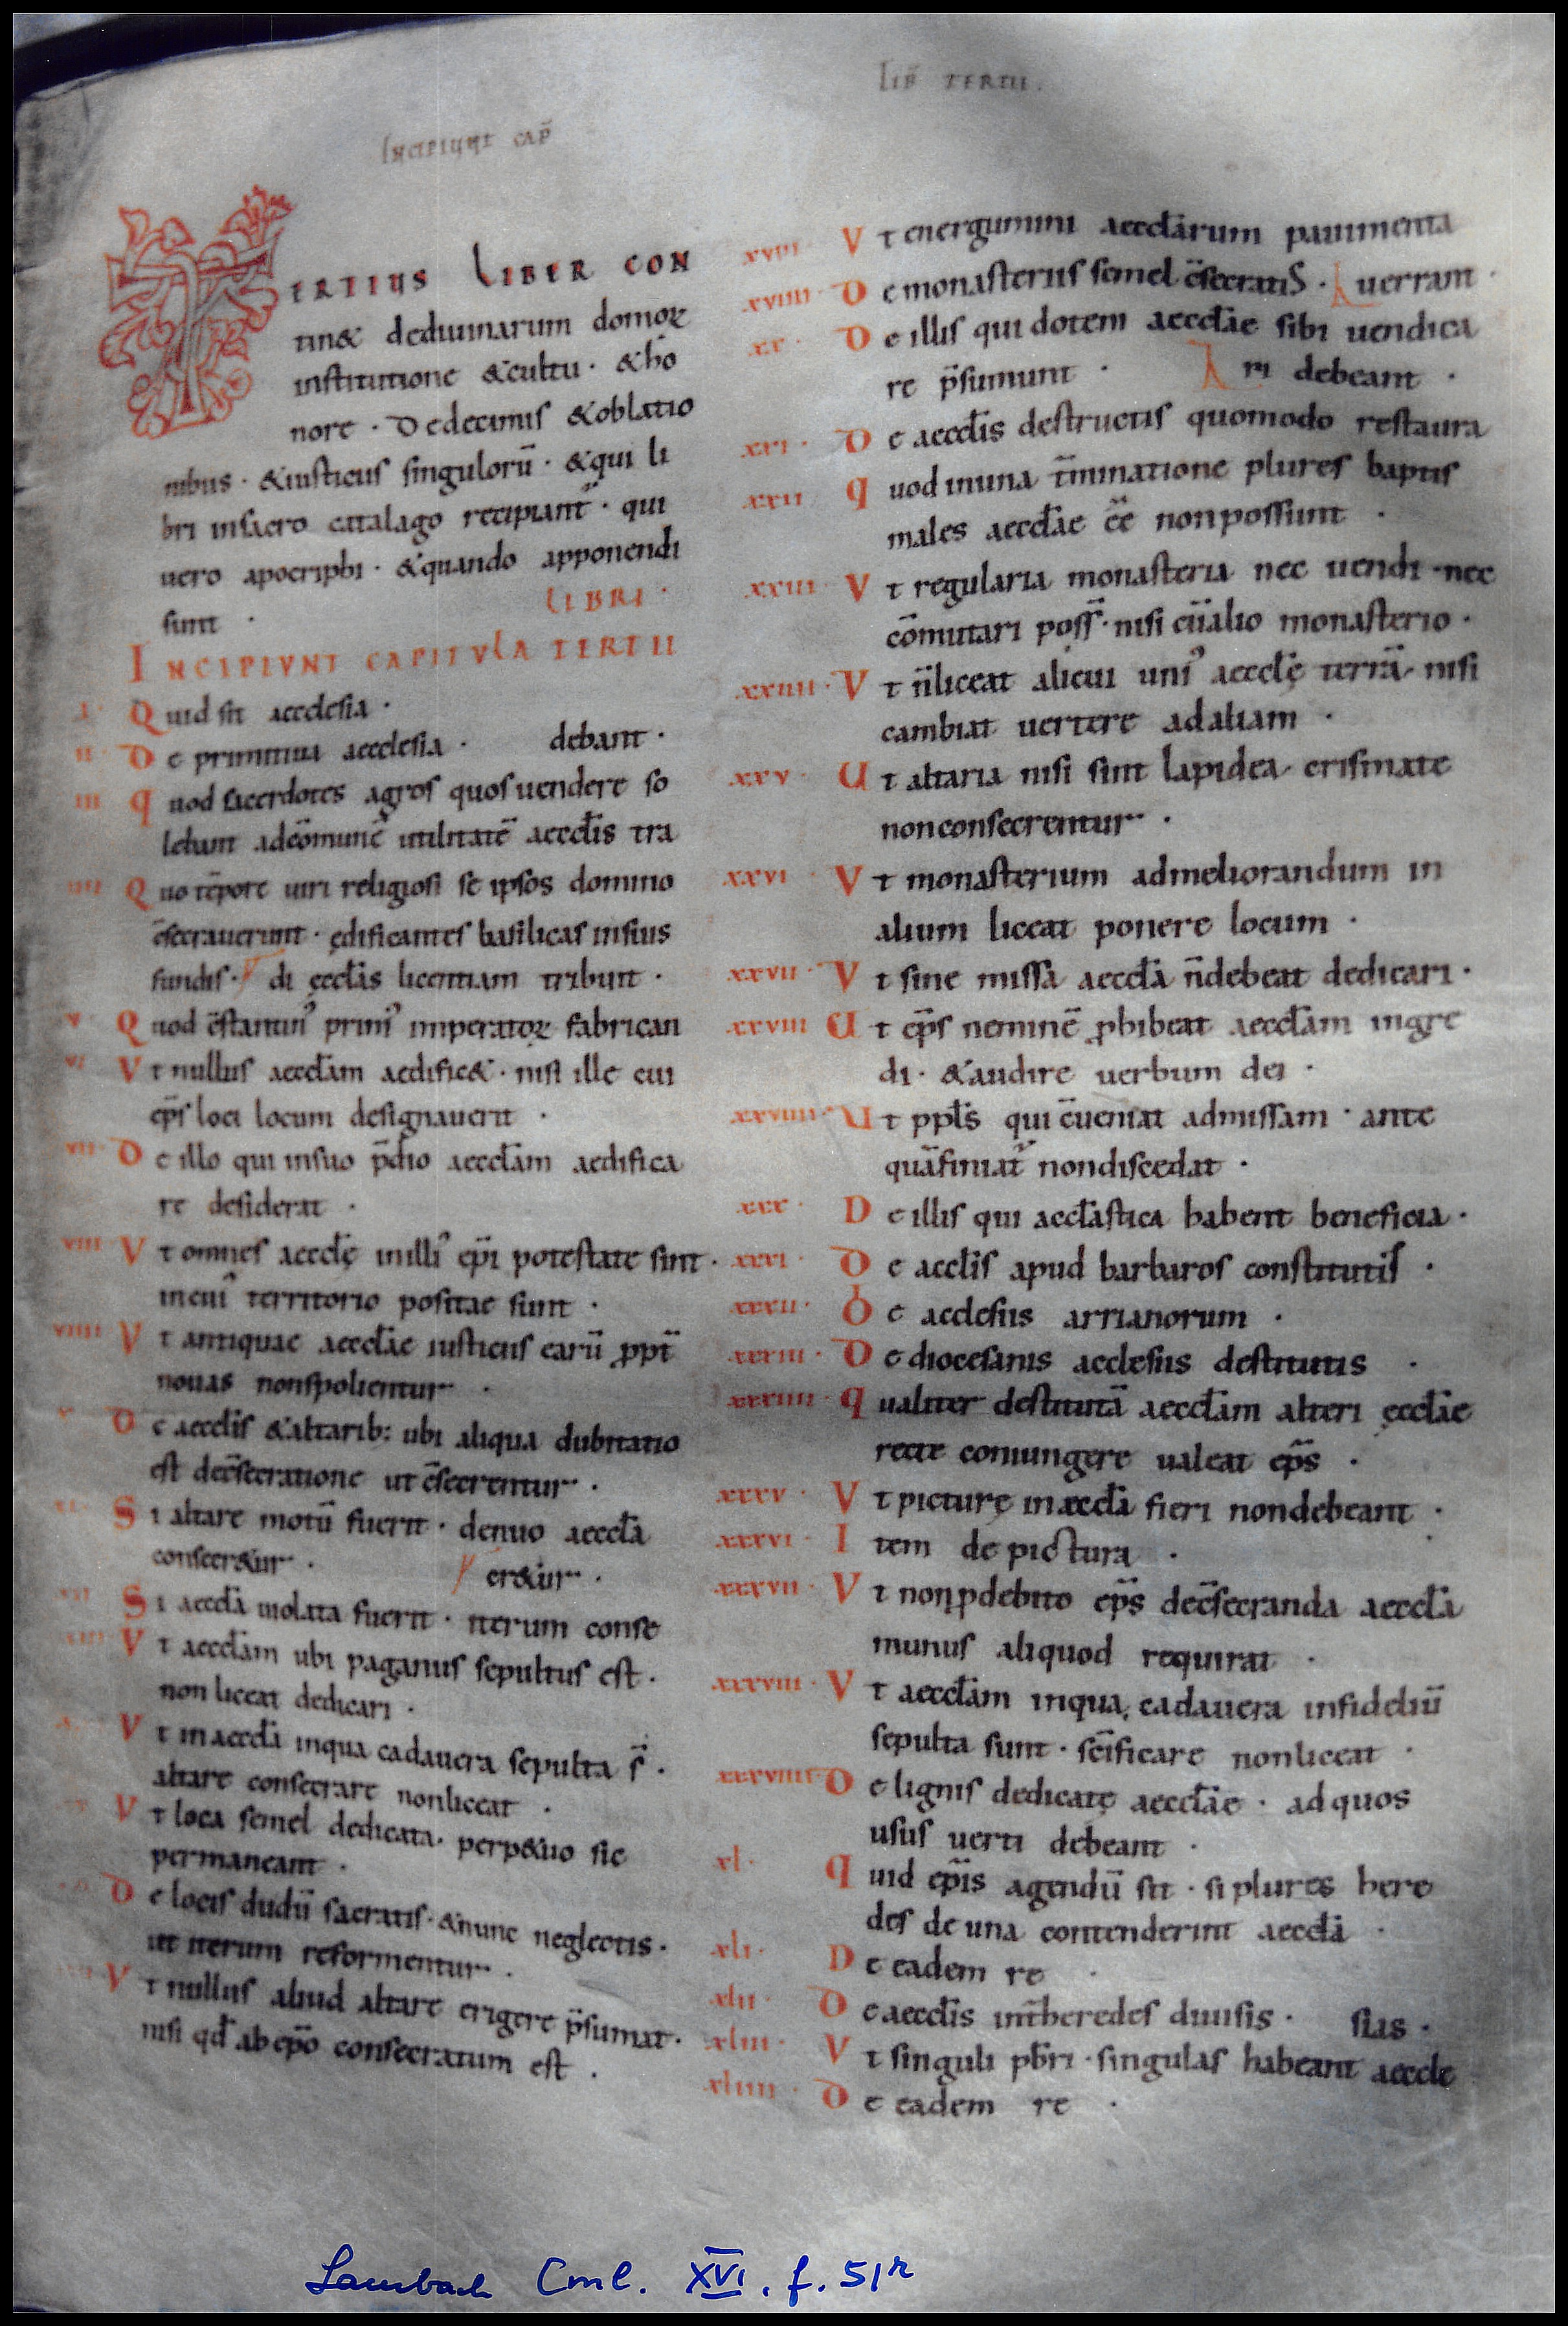 Incipiunt cap̄
Lib̄ tertii.
TERTIUS LIBER CON
tin& dediuinarum domoꝝ
institutione &cultu · &ho
nore · De decimis &oblatio
nibus · &iusticiis singulorū · &qui li
bri insacro catalago recipiant᷑ · qui
uero apocriphi · &quando apponendi
sunt · LIBRI ·
INCIPIVNT CAPITVLA TERTII
I · Quid sit aecclesia ·
II · De primitiua aecclesia · debant ·
III quod sacerdotes agros quos uendere so
lebant adcōmunē utilitatē aecclis tra
IIII Quo tēpore uiri religiosi se ipsos domino
c̄secrauerunt · edificantes basilicas insuis
fundis · di ęccłas licentiam tribuit ·
V · Quod c̄stantin᾽ prim᾽ imperatoꝝ fabrican
VI Vt nullus aeccłam aedific& · nisi ille cui
ep̄s loci locum designauerit ·
VII · De illo qui insuo p̄dio aeccłam aedifica
re desiderat ·
VIII Vt omnes aecclę inilli᾽ ep̄i potestate sint ·
incui᾽ territorio positae sunt ·
VIIII Vt antiquae aeccłae iusticiis earū ꝓpt̄
nouas nonspolientur ·
X · De aecclis &altarib: ubi aliqua dubitatio
est dec̄secratione ut c̄secrentur ·
XI · Si altare motū fuerit · denuo aeccła
consecr&ur · cr&ur ·
XII · Si aeccła uiolata fuerit · iterum conse
XIII Vt aeccłam ubi paganus sepultus est ·
non liceat dedicari ·
Vt inaeccła inqua cadauera sepulta s̄ ·
altare consecrare nonliceat ·
XV Vt loca semel dedicata · perp&uo sic
permaneant ·
De locis dudū sacratis · &nunc neglectis ·
ut iterum reformentur ·
Vt nullus aliud altare erigere p̄sumat ·
nisi qd̄ ab ep̄o consecratum est ·
XVIII Vt energumini aeccłarum pauimenta
XVIIII · De monasteriis semel c̄secratis · uerrant ·
XX · De illis qui dotem aeccłae sibi uendica
re p̄sumunt · ri debeant ·
XXI · De aecclis destructis quomodo restaura
XXII quod inuna t̄minatione plures baptis
males aeccłae ēē nonpossunt ·
XXIII Vt regularia monasteria nec uendi · nec
cōmutari poss̄ · nisi cū alio monasterio ·
XXIIII · Vt n̄liceat alicui uni᾽ aecclę terrā · nisi
cambiat uertere ad aliam ·
XXV · Ut altaria nisi sint lapidea · crismate
nonconsecrentur ·
XXVI · Vt monasterium admeliorandum in
alium liceat ponere locum ·
XXVII · Vt sine missa aeccła n̄debeat dedicari ·
XXVIII Ut ep̄s neminē ꝓhibeat aeccłam ingre
di · &audire uerbum dei ·
XXVIIII · Ut ppłs qui c̄ueniat admissam · ante
quā finiat᷑ nondiscedat ·
XXX · De illis qui aeccłastica habent beneficia ·
XXXI · De acclis apud barbaros constitutis ·
XXXII · De acclesiis arrianorum ·
XXXIII · De diocesanis acclesiis destitutis ·
XXXIIII · qualiter destitutā aeccłam alteri ęccłae
recte coniungere ualeat ep̄s ·
XXXV · Vt picturę inaeccła fieri nondebeant ·
XXXVI · Item de pictura ·
XXXVII · Vt non ꝓdebito ep̄s dec̄secranda aeccła
munus aliquod requirat ·
XXXVIII · Vt aeccłam inqua cadauera infideliū
sepulta sunt · sc̄ificare nonliceat ·
XXXVIIII De lignis dedicatę aeccłae · ad quos
usus uerti debeant ·
XL · quid ep̄is agendū sit · si plures here
des de una contenderint aeccła ·
XLI · De eadem re ·
XLII · De aecclis int̄ heredes diuisis · sias ·
XLIII · Vt singuli pb̄ri · singulas habeant aeccle
XLIIII · De eadem re ·
Lambach Cml. XVI. f. 51r